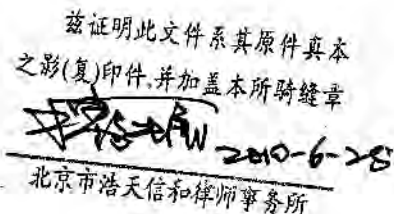 兹证明此文件系其原件真本
之影(复)印件,并加盖本所骑缝章
2010-6-28
北京市浩天信和律师事务所